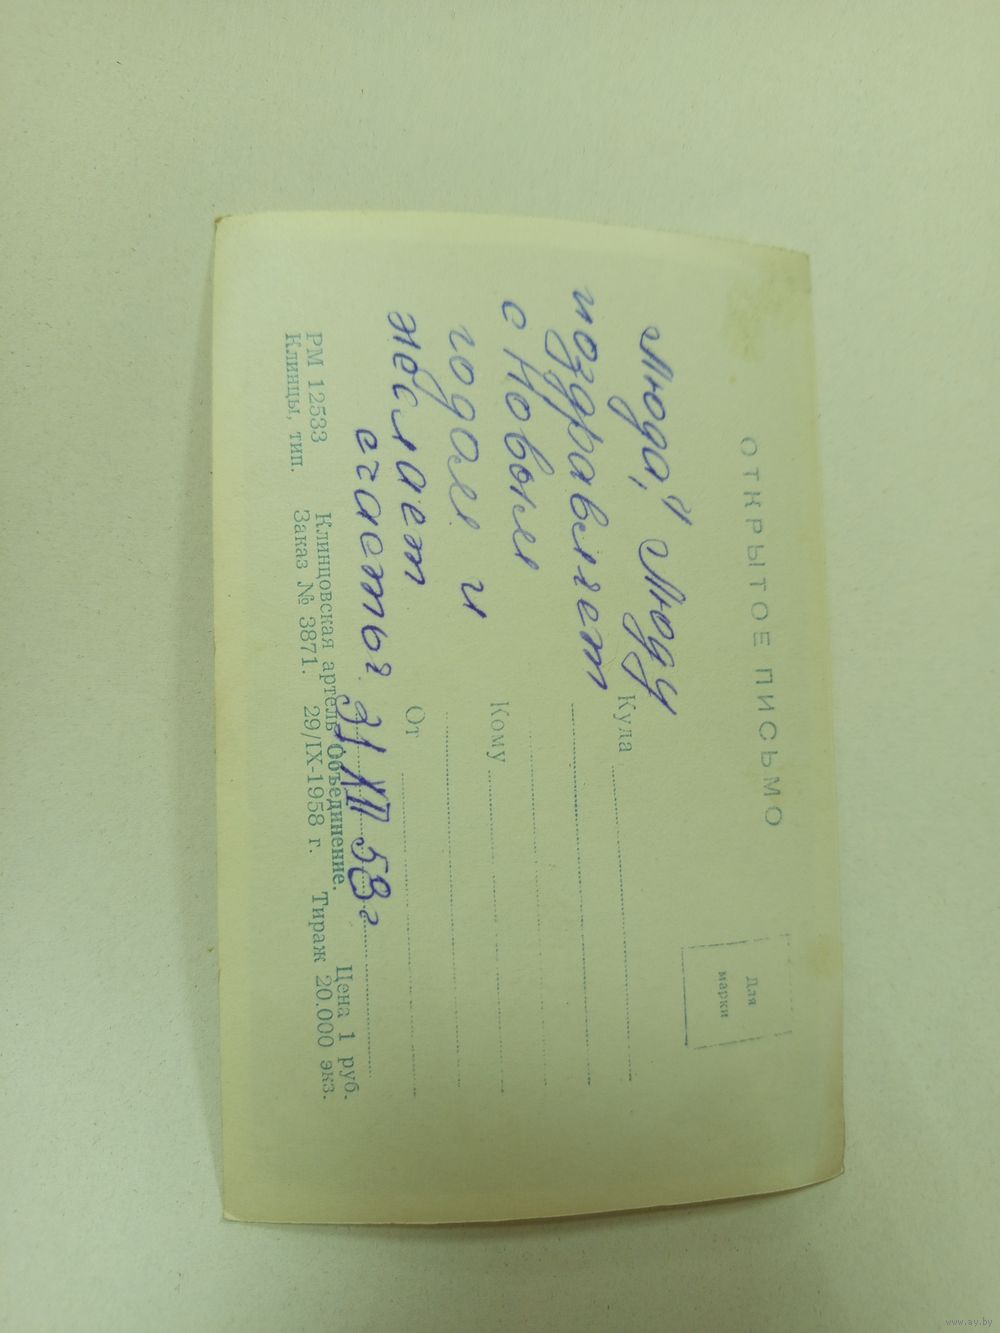 ОТКРЫТОЕ ПИСЬМО
Для
марки
Люда, Люду
поздравляет
с Новым
годом и
желает
счастья.
31/XII 58 г
Куда
Кому
От
РМ 12533 Клинцовская артель Объединение. Цена 1 руб.
Клинцы, тип. Заказ № 3871. 29/IX-1958 г. Тираж 20.000 экз.
www.ay.by